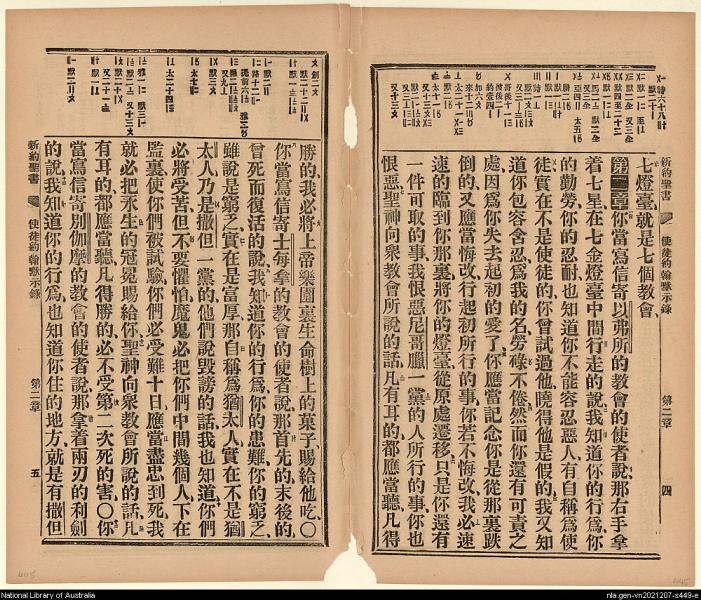 新約聖書 使徒約翰默示錄 第二章 四
七燈臺就是七個教會
第二章 你當寫信寄以弗所的教會的使者說、那右手拿
着七星在七金燈臺中間行走的說、我知道你的行爲、你
的勤勞、你的忍耐、也知道你不能容忍惡人、有自稱爲使
徒、實在不是使徒的、你曾試過他、曉得他是假的、我又知
道你包容含忍、爲我的名勞碌不倦、然而你還有可責之
處、因爲你失去起初的愛了、你應當記念你是從那裏跌
倒的、又應當悔改、行起初所行的事、你若不悔改、我必速
速的臨到你那裏、將你的燈臺從原處遷移、只是你還有
一件可取的事、我恨惡尼哥臘一黨的人所行的事、你也
恨惡、聖神向衆教會所說的話、凡有耳的、都應當聽、凡得
勝的、我必將上帝樂園裏生命樹上的菓子賜給他吃、〇
你當寫信寄士每拿的教會的使者說、那首先的、末後的、
曾死而復活的說、我知道你的行爲、你的患難、你的窮乏、
雖說是窮乏、實在是富厚、那自稱爲猶太人、實在不是猶
太人、乃是撒但一黨的、他們說毀謗的話、我也知道、你們
必將受苦、但不要懼怕、魔鬼必把你們中間幾個人下在
監裏、使你們被試驗、你們必受難十日、應當盡忠到死、我
就必把永生的冠冕賜給你、聖神向衆教會所說的話、凡
有耳的、都應當聽、凡得勝的、必不受第二次死的害、〇你
當寫信寄別伽摩的教會的使者說、那拿着兩刃的利劍
的說、我知道你的行爲、也知道你住的地方、就是有撒但
新約聖書 使徒約翰默示錄 第二章 五
National Library of Australia
nla.gen-vn2021207-s449-e